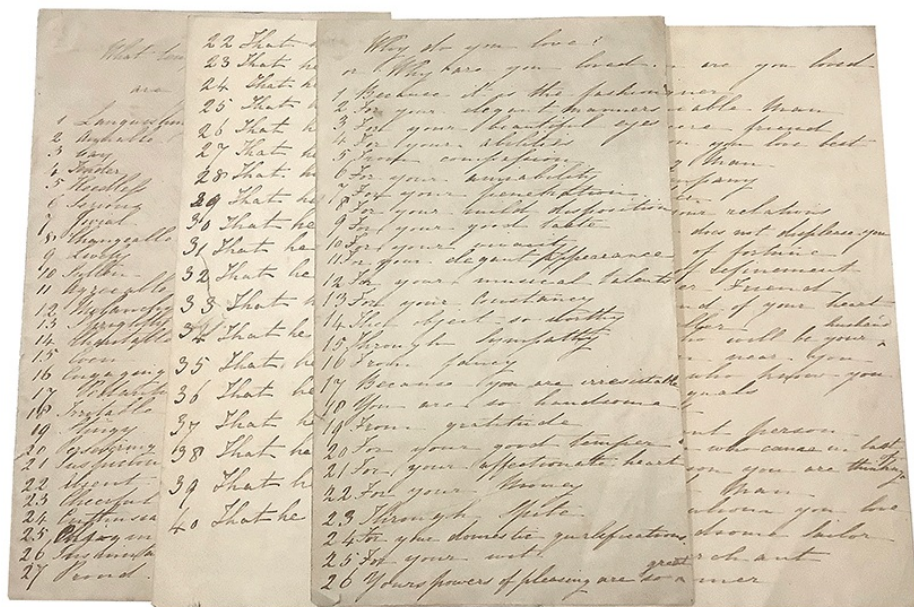 What
are
1 Languishing
2 Amiable
3 Gay
4 Tender
5 Heedless
6 Serious
7 Jovial
8 Changeable
9 Lively
10 Sullen
11 Agreeable
12 Melancholy
13 Sprightly
14 Charitable
15 Even
16 Engaging
17
18 Irritable
19 Stingy
20
21 Suspicious
22 Absent
23 Cheerful
24
25
26
27 Proud
22 That
23 That he
24 That
25 That
26 That h
27 That
28 That h
29 That h
30 That he
31 That he
32 That he
33 That h
34 That he
35 That he
36 That h
37 That h
38 That he
39 That h
40 That he
Why do you love?
or Why are you loved
1 Because it is the fashion
2 For your elegant manners
3 For your beautiful eyes
4 For your abilities
5 From compassion
6 For your amiability
7 For your penetration
8 For your mild disposition
9 For your good taste
10 For your vivacity
11 For your elegant appearance
12 For your musical talents
13 For your constancy
14 The object so worthy
15 Through Sympathy
16 From fancy
17 Because you are irresistable
18 You are so handsome
19 From gratitude
20 For your good temper
21 For your affectionate heart
22 For your Money
23 Through Spite
24 For your domestic qualifications
25 For your wit
26 Yours powers of pleasing are so great
are you loved
ner
iable Man
cere friend
you love best
g Man
pany
relations
does not displease you
of fortune
of refinement
r Friend
d of your heart
who will be your husband
near you
who knew you
quals
nt person
who came in last
on you are thinking
Man
whom you love
dsome Sailor
rchant
mer